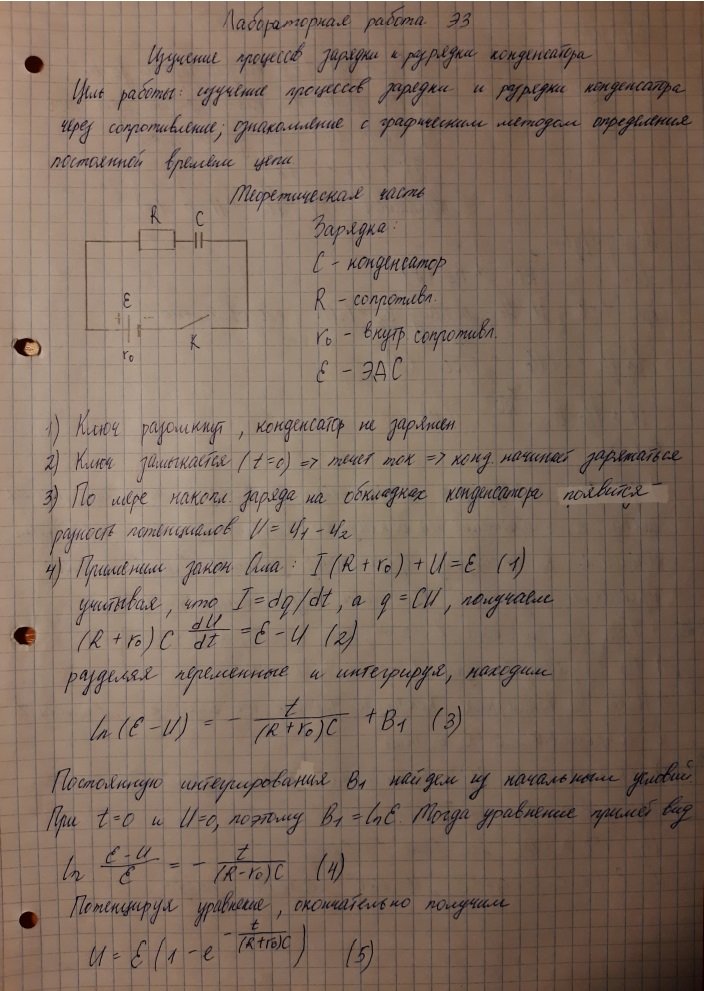 Лабораторная работа Э3
Изучение процессов зарядки и разрядки конденсатора
Цель работы: изучение процессов зарядки и разрядки конденсатора
через сопротивление; ознакомление с графическим методом определения
постоянной времени цепи
Теоретическая часть
R C
ε
r₀ K
Зарядка:
C - конденсатор
R - сопротивл.
r₀ - внутр сопротивл.
ε - ЭДС
1) Ключ разомкнут, конденсатор не заряжен
2) Ключ замыкается (t=0) => течёт ток => конд. начинает заряжаться
3) По мере накопл. заряда на обкладках конденсатора появится
разность потенциалов U = φ₁ - φ₂
4) Применим закон Ома: I(R + r₀) + U = ε (1)
учитывая, что I = dq/dt, а q = CU, получаем
(R + r₀) C dU/dt = ε - U (2)
разделяя переменные и интегрируя, находим
ln(ε - U) = - t/((R + r₀)C) + B₁ (3)
Постоянную интегрирования B₁ найдем из начальным условий.
При t=0 и U=0, поэтому B₁ = lnε. Тогда уравнение примет вид
ln (ε - U)/ε = - t/((R - r₀)C) (4)
Потенцируя уравнение, окончательно получим
U = ε(1 - e^(-t/((R+r₀)C))) (5)